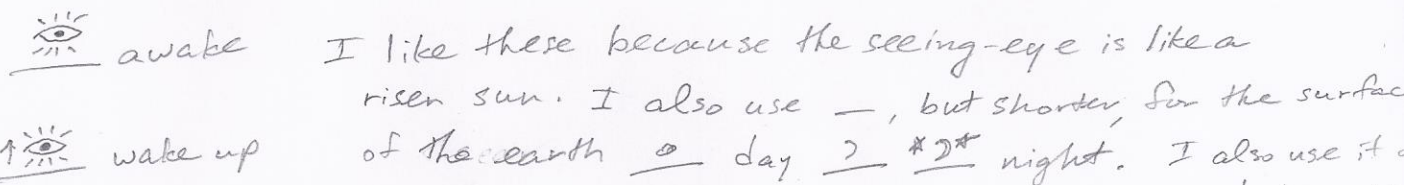 awake I like these because the seeing-eye is like a
risen sun. I also use —, but shorter, for the surfac
wake up of the earth day night. I also use it